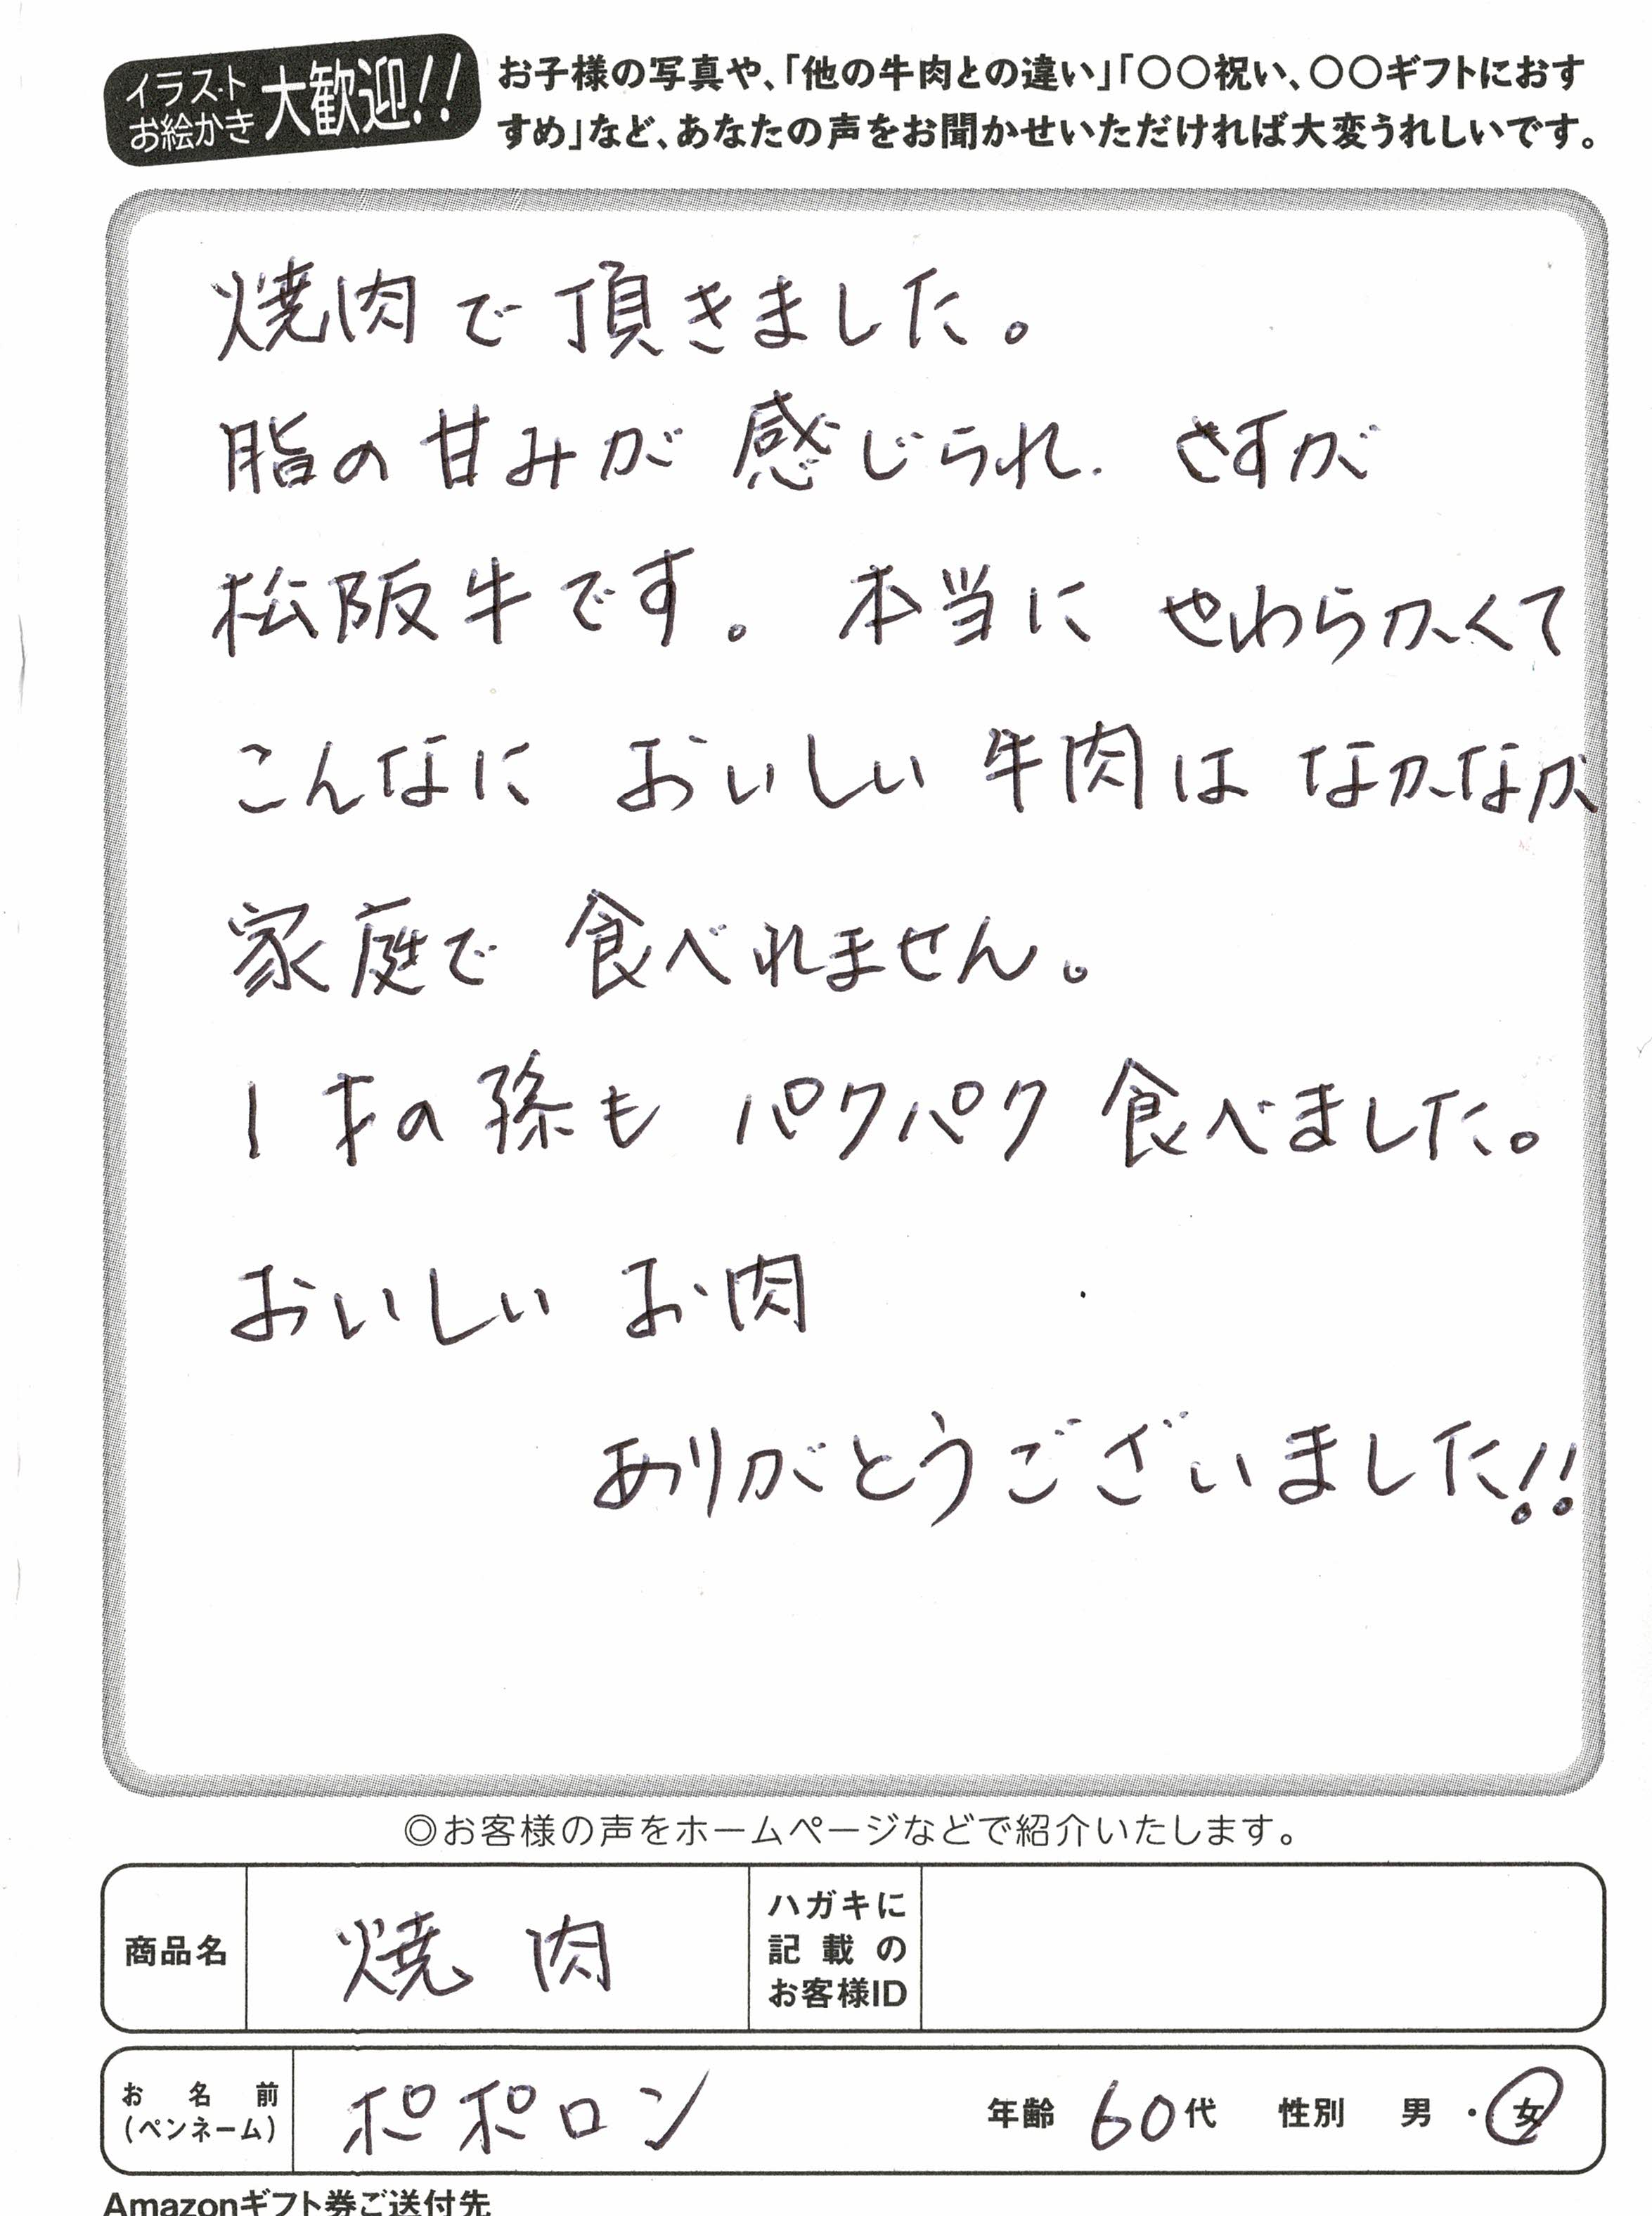 イラスト
お絵かき
大歓迎!!
お子様の写真や、「他の牛肉との違い」「〇〇祝い、〇〇ギフトにおす
すめ」など、あなたの声をお聞かせいただければ大変うれしいです。
焼肉で頂きました。
脂の甘みが感じられ、さすが
松阪牛です。本当にやわらかくて
こんなにおいしい牛肉はなかなか
家庭で食べれません。
1才の孫もパクパク食べました。
おいしいお肉
ありがとうございました!!
◎お客様の声をホームページなどで紹介いたします。
商品名
焼肉
ハガキに
記載の
お客様ID
お名前
(ペンネーム)
ポポロン
年齢 60代 性別 男・女
Amazonギフト券ご送付先